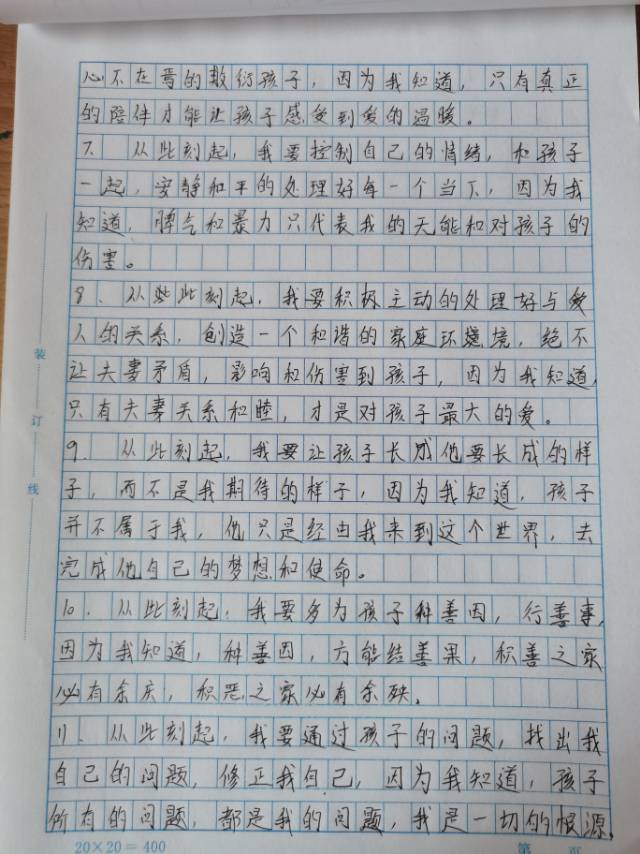 心不在焉的敷衍孩子，因为我知道，只有真正
的陪伴才能让孩子感受到爱的温暖。
7、从此刻起，我要控制自己的情绪，和孩子
一起，安静和平的处理好每一个当下，因为我
知道，脾气和暴力只代表我的无能和对孩子的
伤害。
8、从此刻起，我要积极主动的处理好与爱
人的关系，创造一个和谐的家庭环境，绝不
让夫妻矛盾，影响和伤害到孩子，因为我知道，
只有夫妻关系和睦，才是对孩子最大的爱。
9、从此刻起，我要让孩子长成他要长成的样
子，而不是我期待的样子，因为我知道，孩子
并不属于我，他只是经由我来到这个世界，去
完成他自己的梦想和使命。
10、从此刻起，我要多为孩子种善因，行善事，
因为我知道，种善因，方能结善果，积善之家
必有余庆，积恶之家必有余殃。
11、从此刻起，我要通过孩子的问题，找出我
自己的问题，修正我自己，因为我知道，孩子
所有的问题，都是我的问题，我是一切的根源。
装
订
线
20×20=400
第 页